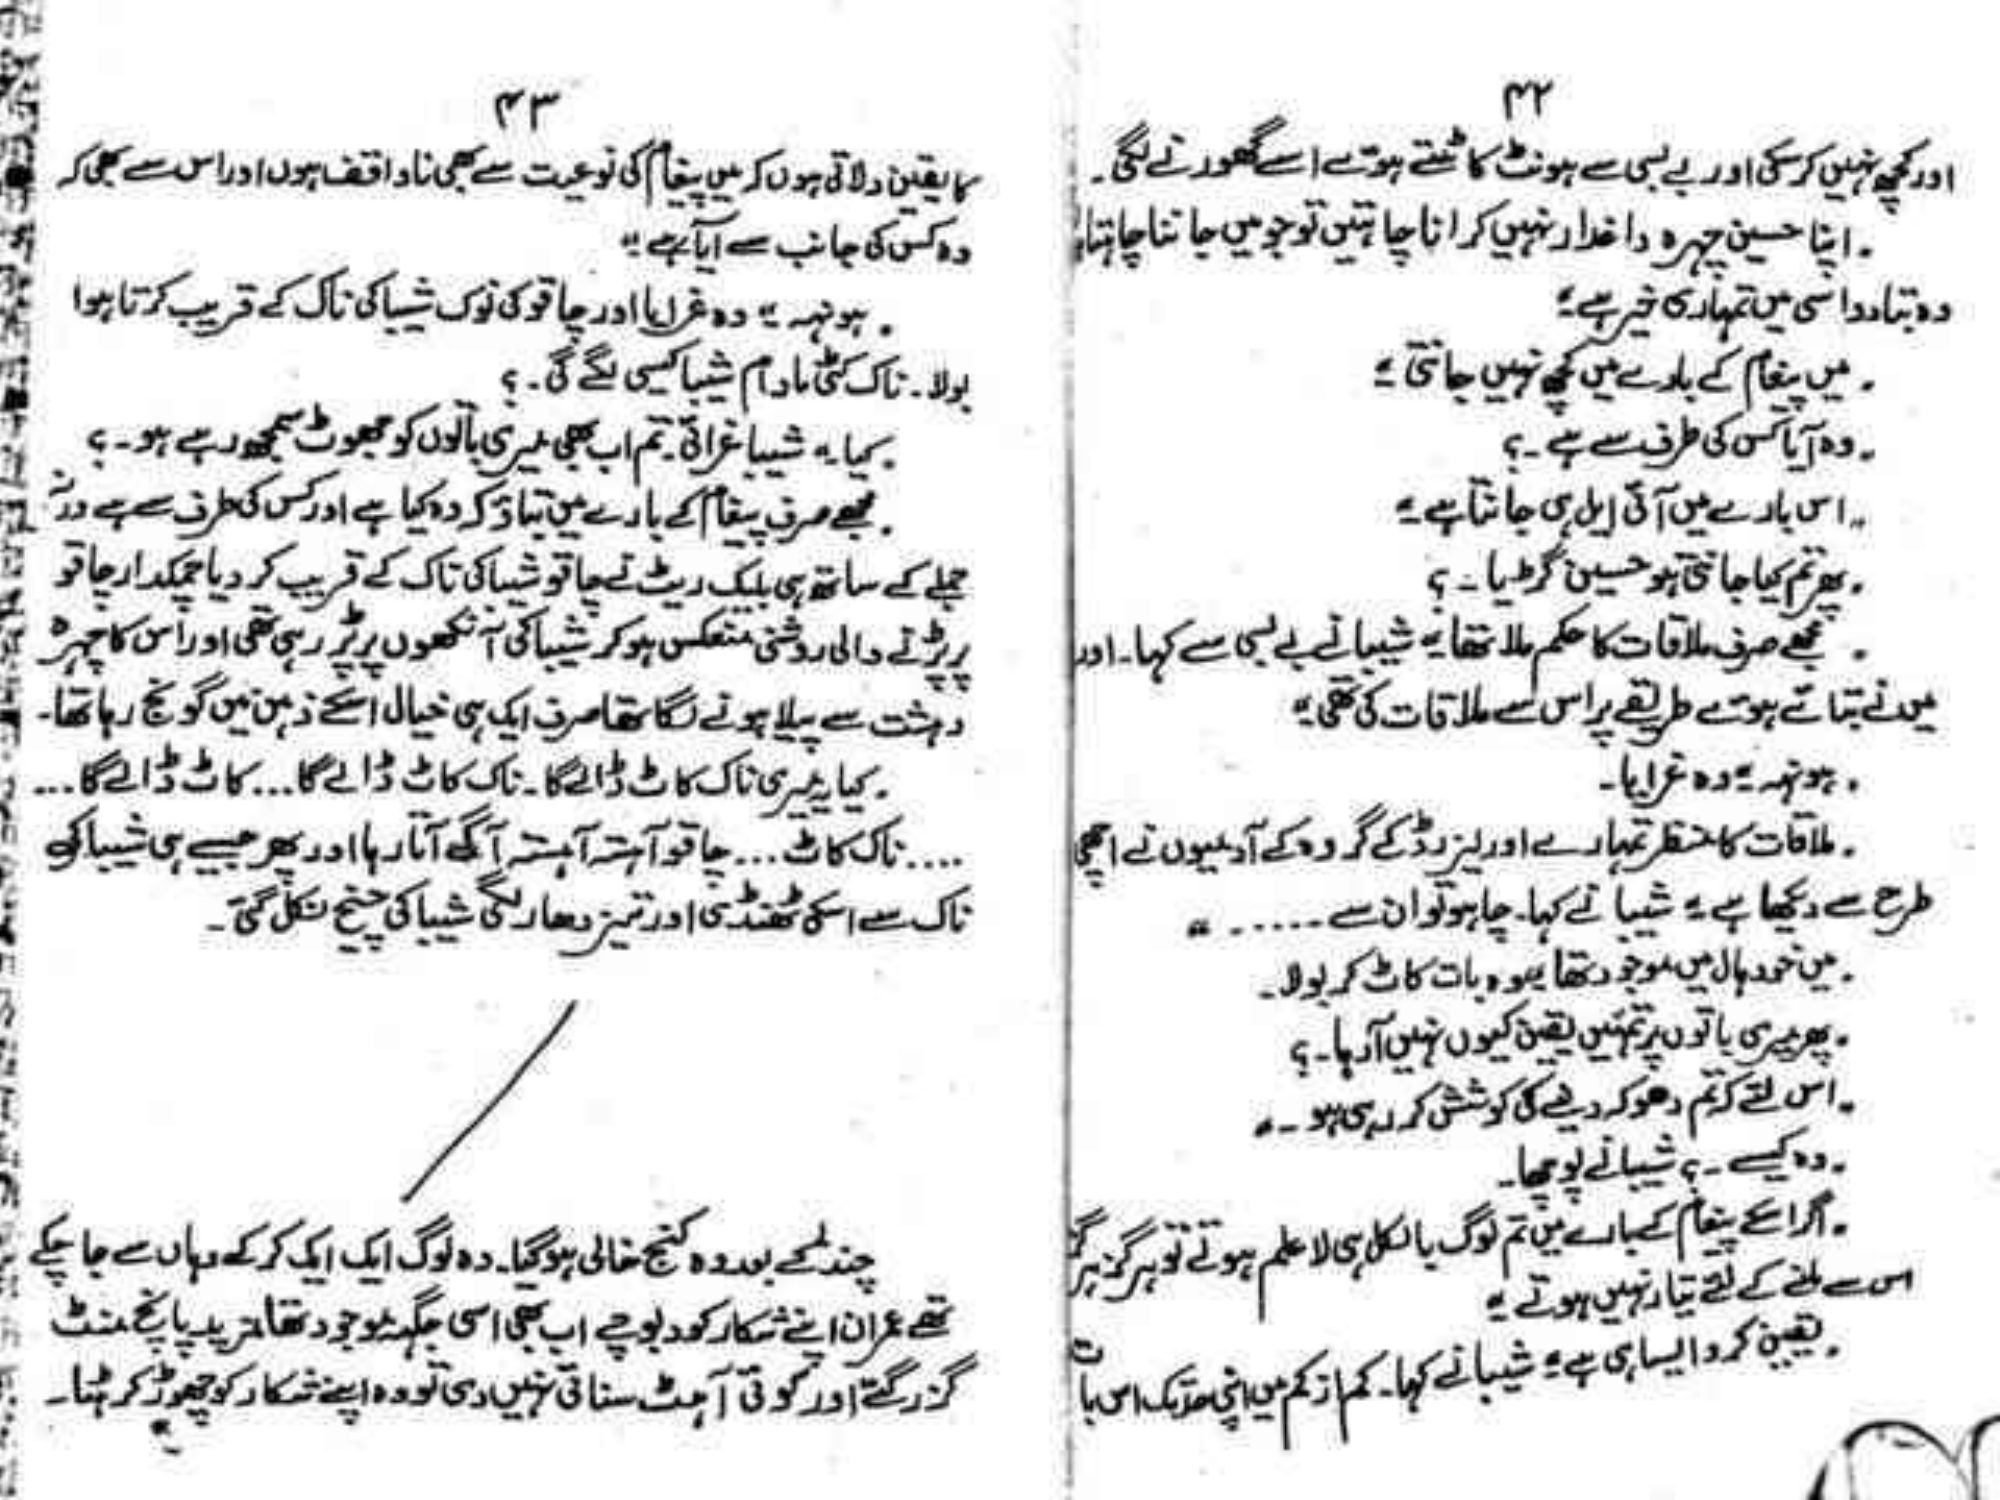 ۴۲
اور کچھ نہیں کر سکی اور بے بسی سے ہونٹ کاٹتے ہوئے اسے گھورنے لگی۔
۔ اپنا حسین چہرہ داغدار نہیں کرانا چاہتیں تو جو میں جاننا چاہتا
وہ بتا دو اسی میں تمہاری خیر ہے"
۔ میں پیغام کے بارے میں کچھ نہیں جانتی"
۔ وہ آیا کس کی طرف سے ہے ۔؟
"اس بارے میں آئی ایل ہی جانتا ہے"
۔ پھر تم کیا جانتی ہو حسین گڑیا ۔ ؟
۔ مجھے صرف ملاقات کا حکم ملا تھا" شیبا نے بے بسی سے کہا۔ اور
میں نے بتائے ہوئے طریقے پر اس سے ملاقات کی تھی"
۔ ہونہہ" وہ غرایا۔
۔ ملاقات کا منظر تمہارے اور لیزرڈ کے گروہ کے آدمیوں نے اچھی
طرح سے دیکھا ہے" شیبا نے کہا۔ چاہو تو ان سے ......"
۔ میں خود ہال میں موجود تھا" وہ بات کاٹ کر بولا۔
۔ پھر میری باتوں پر تمہیں یقین کیوں نہیں آرہا۔؟
۔ اس لئے کہ تم دھوکہ دینے کی کوشش کر رہی ہو ۔"
۔ وہ کیسے ۔؟ شیبا نے پوچھا۔
۔ اگر اسکے پیغام کے بارے میں تم لوگ بالکل ہی لاعلم ہوتے تو ہرگز ہرگز
اس سے ملنے کے لئے تیار نہیں ہوتے"
۔ یقین کرو ایسا ہی ہے" شیبا نے کہا۔ کم از کم میں اپنی حد تک اس بات
۴۳
کا یقین دلاتی ہوں کہ میں پیغام کی نوعیت سے بھی ناواقف ہوں اور اس سے بھی کہ
وہ کس کی جانب سے آیا ہے"
۔ ہونہہ" وہ غرایا اور چاقو کی نوک شیبا کی ناک کے قریب کرتا ہوا
بولا۔ ناک کٹی مادام شیبا کیسی لگے گی ۔؟
۔ کیا" شیبا غرائی۔ تم اب بھی میری باتوں کو جھوٹ سمجھ رہے ہو۔؟
۔ مجھے صرف پیغام کے بارے میں بتاؤ کہ وہ کیا ہے اور کس کی طرف سے ہے ورنہ
جملے کے ساتھ ہی بلیک ریٹ نے چاقو شیبا کی ناک کے قریب کر دیا چمکدار چاقو
پر پڑنے والی روشنی منعکس ہو کر شیبا کی آنکھوں پر پڑ رہی تھی اور اس کا چہرہ
دہشت سے پیلا ہونے لگا تھا صرف ایک ہی خیال اسکے ذہن میں گونج رہا تھا۔
۔ کیا یہ میری ناک کاٹ ڈالے گا۔ ناک کاٹ ڈالے گا... کاٹ ڈالے گا...
.... ناک کاٹ ... چاقو آہستہ آہستہ آگے آتا رہا اور پھر جیسے ہی شیبا کی
ناک سے اسکی ٹھنڈی اور تیز دھار لگی شیبا کی چیخ نکل گئی۔
چند لمحے بعد وہ کنج خالی ہوگیا۔ وہ لوگ ایک ایک کرکے وہاں سے جا چکے
تھے عمران اپنے شکار کو دبوچے اب بھی اسی جگہ موجود تھا مزید پانچ منٹ
گزر گئے اور کوئی آہٹ سنائی نہیں دی تو وہ اپنے شکار کو چھوڑ کر ہٹا۔